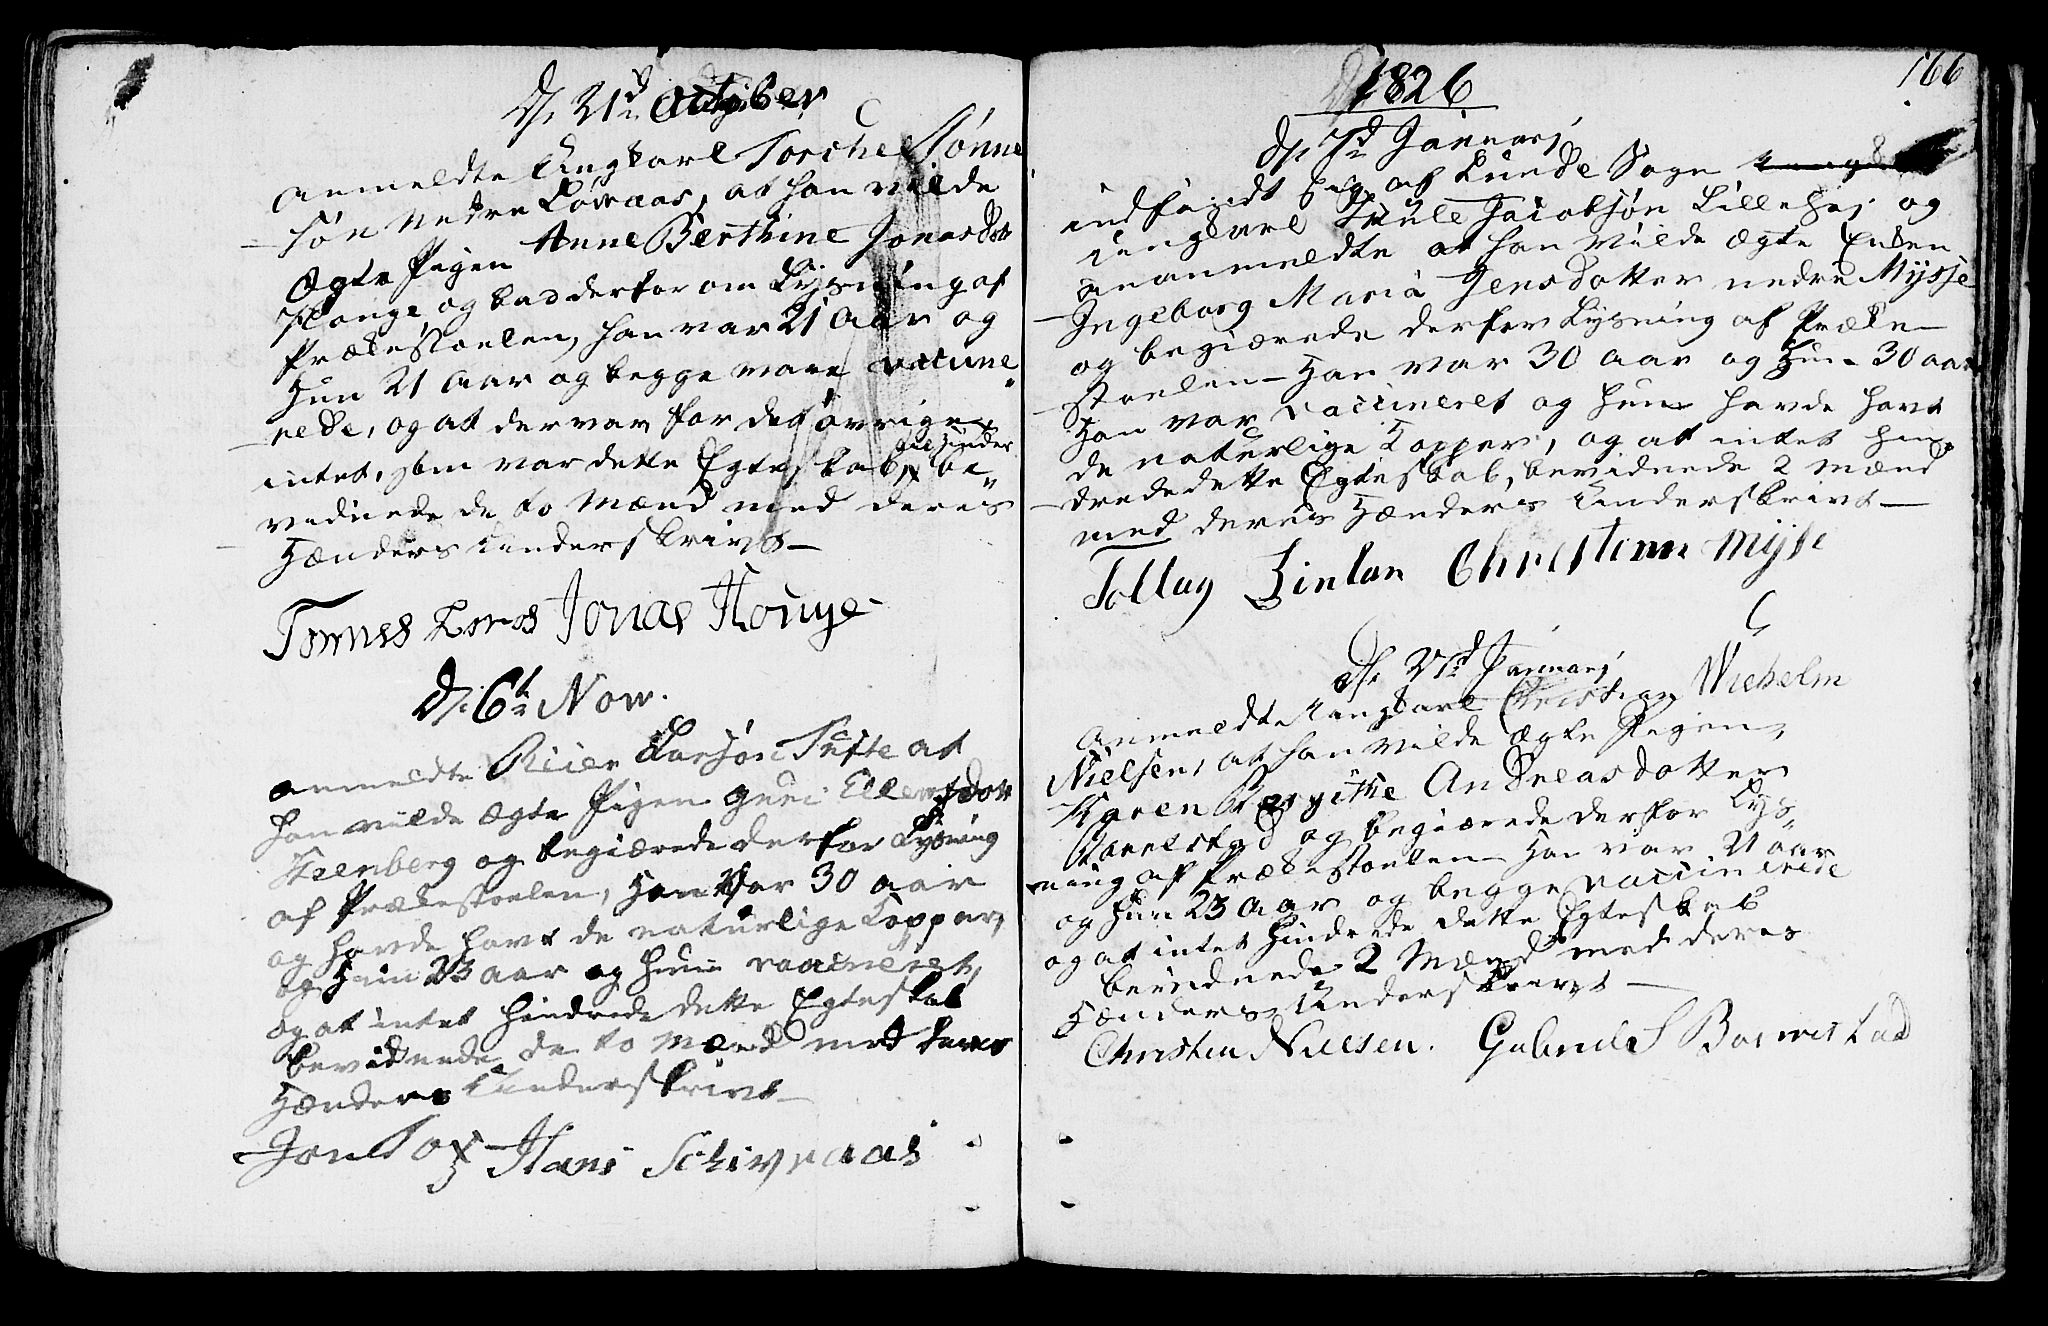 D. 21d October
anmeldte Ungkarl Torchel Tønne
søn Nedre Løvaas, at han vilde
Ægte Pigen Anne Berthine Jonasdotr
Houge og bad derfor om Lysning af
Prækestoelen, han var 21 Aar og
Hun 21 Aar og begge vare vacine
rede, og at der var for det øvrige
intet, som var dette Egteskab til Hinder be
vidnede de to Mænd med deres
Hænders Underskrivt
Jonas Houge
D. 6t Now.
anmeldte Reier Larsøn Tufte at
han vilde Ægte Pigen Guri Ellensdotr
Steenberg og begiærede derfor Lysning
af Prækestoelen, Han Var 30 aar
og havde havt de naturlige Copper,
og Hun 23 aar og hun vaccineret,
og at intet hindrede dette Egteskab
bevidnede de to Mænd med deres
Hænders Underskrivt
Hans Schivraas
166
1826
D. 7d Januarj
indfandt sig af Lunde Sogn
ungkarl Jacobsøn Lillehej og
anmeldte at han vilde Ægte Enken
Ingeborg Maria Jensdotter nedre Mysse
og begiærede derfor Lysning af Præke
stoelen Han var 30 aar og Hun 30 aar
Han var vaccineret og hun havde havt
de naturlige Copper, og at intet hin
drede dette Egteskab, bevidnede 2 Mænd
med deres Hænders Underskrivt
Tollag Christen Myse
D. 21d Januarj
Anmeldte Ungkarl Christian Wichelm
Nielsen, at han vilde Ægte Pigen
Karen Andreasdotter
og begiærede derfor Lys
ning af Prækestoelen Han var 21 aar
og Hun 23 aar og begge vaccinerede
og at intet hinderde dette Egteskab
bevidnede 2 Mænd med deres
Hænders Underskrivt
Christen Nielsen. Gabriel S